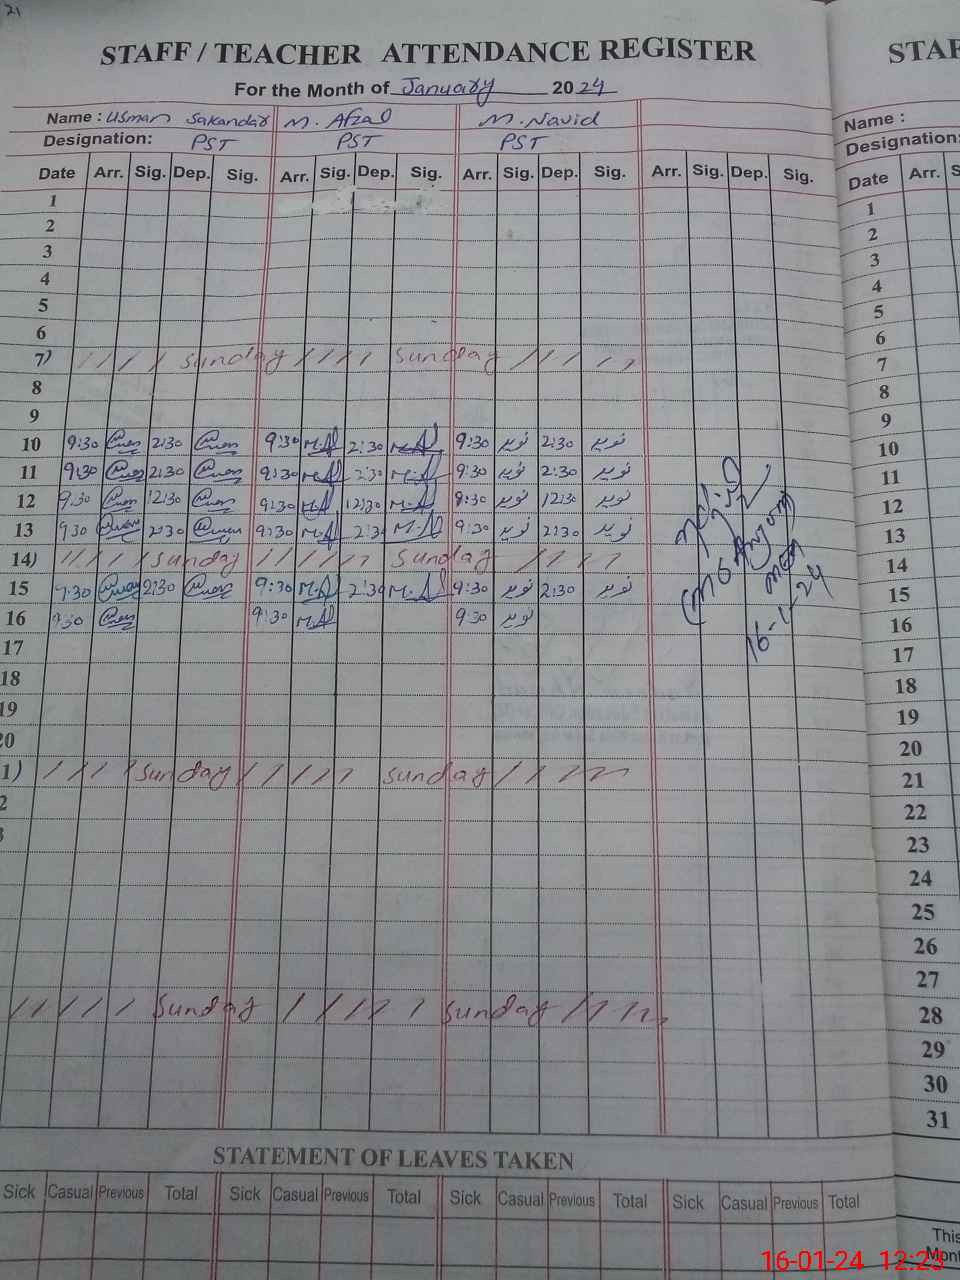 21
STAFF / TEACHER ATTENDANCE REGISTER
STAF
For the Month of January 2024
Name : Usman Sakandar M. Afzal M. Navid
Name :
Designation: PST PST PST
Designation:
Date Arr. Sig. Dep. Sig. Arr. Sig. Dep. Sig. Arr. Sig. Dep. Sig. Arr. Sig. Dep. Sig.
Date Arr. S
1 1
2 2
3 3
4 4
5 5
6 6
7) Sunday Sunday 7
8 8
9 9
10 9:30 2:30 9:30 M.Af 2:30 M.Af 9:30 نوید 2:30 نوید 10
11 9:30 2:30 9:30 M.Af 2:30 M.Af 9:30 نوید 2:30 نوید 11
12 9:30 12:30 9:30 M.Af 12:30 M.Af 9:30 نوید 12:30 نوید 12
13 9:30 2:30 9:30 M.Af 2:30 M.Af 9:30 نوید 2:30 نوید 13
14) Sunday Sunday 14
15 9:30 2:30 9:30 M.Af 2:30 M.Af 9:30 نوید 2:30 نوید 15
16 9:30 9:30 M.Af 9:30 نوید 16
17 17
18 18
19 19
20 20
1) Sunday Sunday 21
2 22
3 23
24
25
26
27
Sunday Sunday 28
29
30
31
16-1-24
STATEMENT OF LEAVES TAKEN
Sick Casual Previous Total Sick Casual Previous Total Sick Casual Previous Total Sick Casual Previous Total
This
Mont
16-01-24 12:23